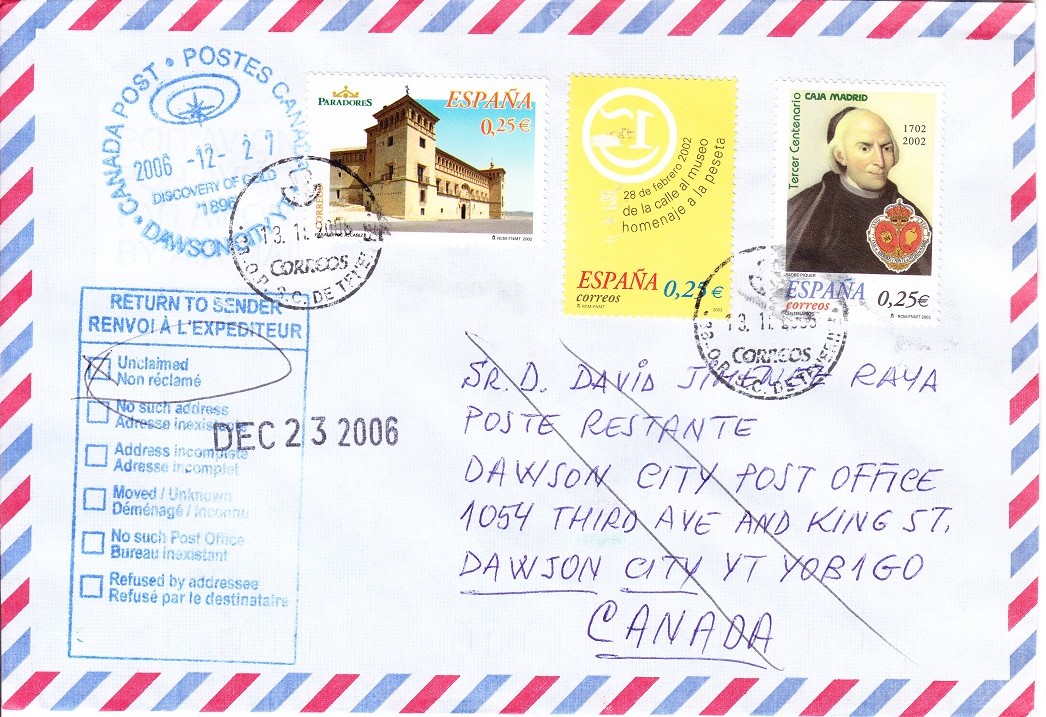 CANADA POST • POSTES CANADA
2006 -12- 2 7
DISCOVERY OF GOLD
1896
• DAWSON CITY YT •
PARADORES
ESPAÑA
0,25€
CORREOS
RCM-FNMT 2002
13 11 2006
CORREOS
S.C. DE TENERIFE
28 de febrero 2002
de la calle al museo
homenaje a la peseta
ESPAÑA
correos
0,25 €
RCM-FNMT
2002
Tercer Centenario
CAJA MADRID
1702
2002
PADRE PIQUER
ESPAÑA
correos
CENTENARIOS
0,25€
RCM-FNMT 2002
13 11 2006
CORREOS
S.C. DE TENERIFE
RETURN TO SENDER
RENVOI À L'EXPEDITEUR
Unclaimed
Non réclamé
No such address
Adresse inexistante
Address incomplete
Adresse incomplet
Moved / Unknown
Déménagé / Inconnu
No such Post Office
Bureau inexistant
Refused by addressee
Refusé par le destinataire
DEC 2 3 2006
SR. D. DAVID JIMENEZ RAYA
POSTE RESTANTE
DAWSON CITY POST OFFICE
1054 THIRD AVE AND KING ST.
DAWSON CITY YT YOB1GO
CANADA